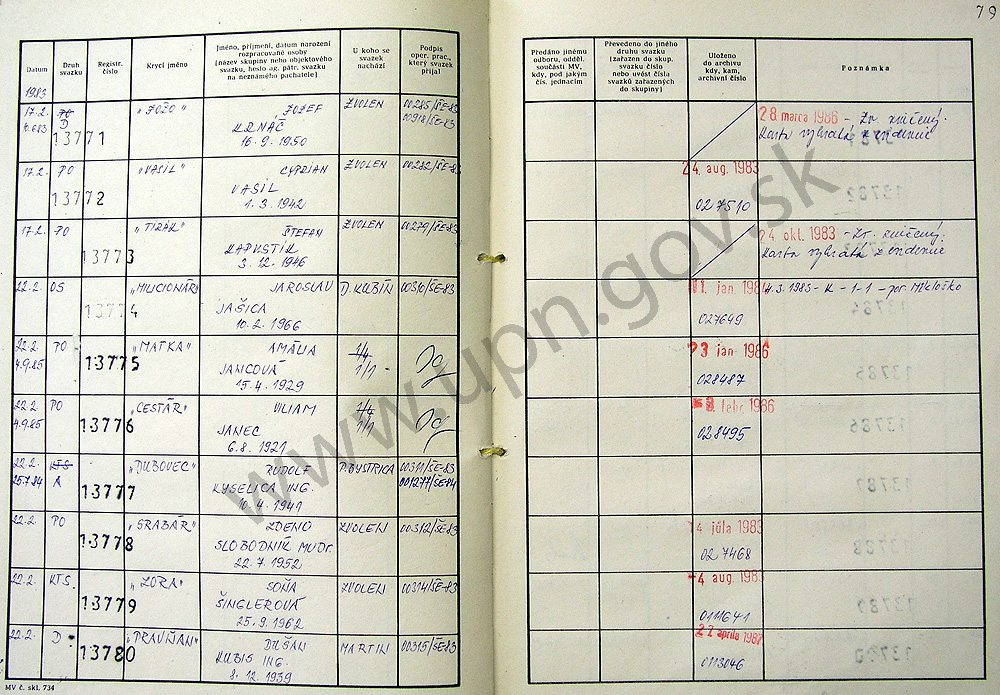 79
Datum
Druh svazku
Registr. číslo
Krycí jméno
Jméno, příjmení, datum narození rozpracované osoby (název skupiny nebo objektového svazku, heslo ag. pátr. svazku na neznámého pachatele)
U koho se svazek nachází
Podpis oper. prac., který svazek přijal
Předáno jinému odboru, odděl. součásti MV, kdy, pod jakým čís. jednacím
Převedeno do jiného druhu svazku (zařazen do skup. svazku číslo nebo uvést čísla svazků zařazených do skupiny)
Uloženo do archivu kdy, kam, archivní číslo
Poznámka
1983
17.2. PO 13771 "JOŽO" JOZEF ZVOLEN 00285/ŠE-83
D KRNÁČ 00918/ŠE-83
16.9.1950
28. marca 1986 - Zv. zničený.
Karta vybratá z evidencie
17.2. PO 13772 "VASIL" CYPRIAN ZVOLEN 00282/ŠE-83 24. aug. 1983
VASIL
1.3.1942 027510
17.2. PO 13773 ŠTEFAN ZVOLEN 00279/ŠE-83
KAPUSTÍK
3.12.1946
24. okt. 1983 - Zv. zničený.
Karta vybratá z evidencie
22.2. OS 13774 "MILICIONÁR" JAROSLAV D. KUBÍN 00310/ŠE-83
JAŠICA
10.2.1966 027649
22.2. PO 13775 "MATKA" AMÁLIA 1/4 23 jan 1986
4.9.85 JANCOVÁ 1/1
15.4.1929 028487
22.2. PO 13776 "CESTÁR" VILIAM 1/4 febr. 1986
4.9.85 JANEC 1/1
6.8.1921 028495
22.2. KTS 13777 "DUBOVEC" RUDOLF P. BYSTRICA 00311/ŠE-83
25.7.84 A KYSELICA ING. 001277/ŠE-84
10.4.1941
22.2. PO 13778 "SRABÁR" ZDENO ZVOLEN 00312/ŠE-83 14 júla 1983
SLOBODNÍK MUDr.
22.7.1952 027468
22.2. KTS. 13779 "ZORA" SOŇA ZVOLEN 00314/ŠE-83 4 aug. 1983
ŠINGLEROVÁ
25.9.1962 0111641
22.2. D 13780 "PRAVŇAN" DUŠAN MARTIN 00315/ŠE-83 22 apríla 1987
KUBIS ING.
8.12.1939 0113046
MV č. skl. 734
www.upn.gov.sk